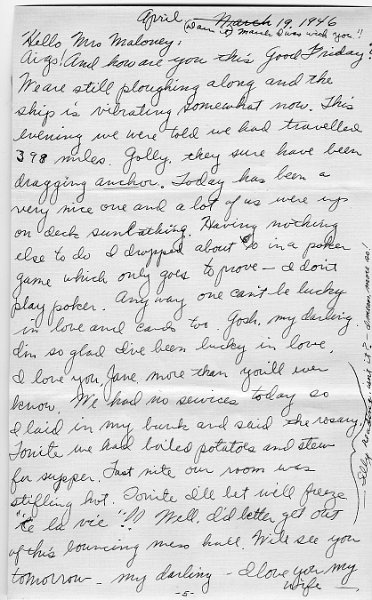 April March 19, 1946
(Darn it) March I was with you!!
Hello Mrs Maloney;
And how are you this Good Friday?
We are still ploughing along and the
ship is vibrating somewhat now. This
evening we were told we had travelled
398 miles. Golly, they sure have been
dragging anchor. Today has been a
very nice one and a lot of us were up
on deck sunbathing. Having nothing
else to do I dropped about in a poker
game which only goes to prove — I don't
play poker. Any way one can't be lucky
in love and cards too. Gosh, my darling
I'm so glad I've been lucky in love.
I love you, Jane, more than you'll ever
know. We had no services today so
I laid in my bunk and said the rosary.
Tonite we had boiled potatoes and stew
for supper. Last nite our room was
stifling hot. Tonite I'll bet we'll freeze
"Ce la vie"!! Well, I'd better get out
of this bouncing mess hall. Will see you
tomorrow — my darling — I love you my
wife —
-5-
Silly isn't it? I mean more so!